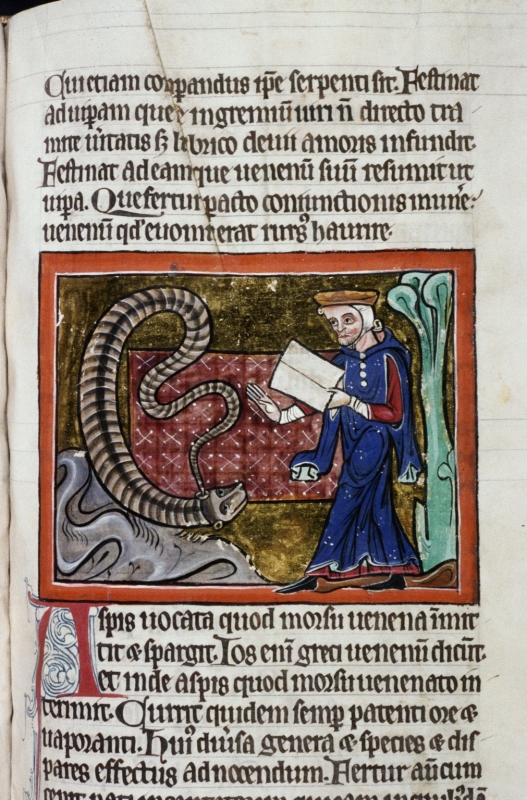 Qui etiam co͛pandus ip̅e serpenti sit. Festinat
ad uip̱am que in gremiū uiri n̄ directo tra
mite ūitatis sȝ lubrico deuii amoris infundit.
Festinat ad eamque uenenū suū resumit ut
uip̱a. Que fertur pacto coniunctionis munere
uenenū qd' euomuerat rursꝰ haurire.
Aspis uocata quod morsu uenena īmit
tit ⁊ spargit. Ios enī greci uenenū dicūt.
et inde aspis quod morsu uenenato in
terimit. Currit quidem semp̱ patenti ore ⁊
uaporanti. Huiꝰ diūsa genera ⁊ species ⁊ dis
pares effectus ad nocendum. Fertur aūt cum